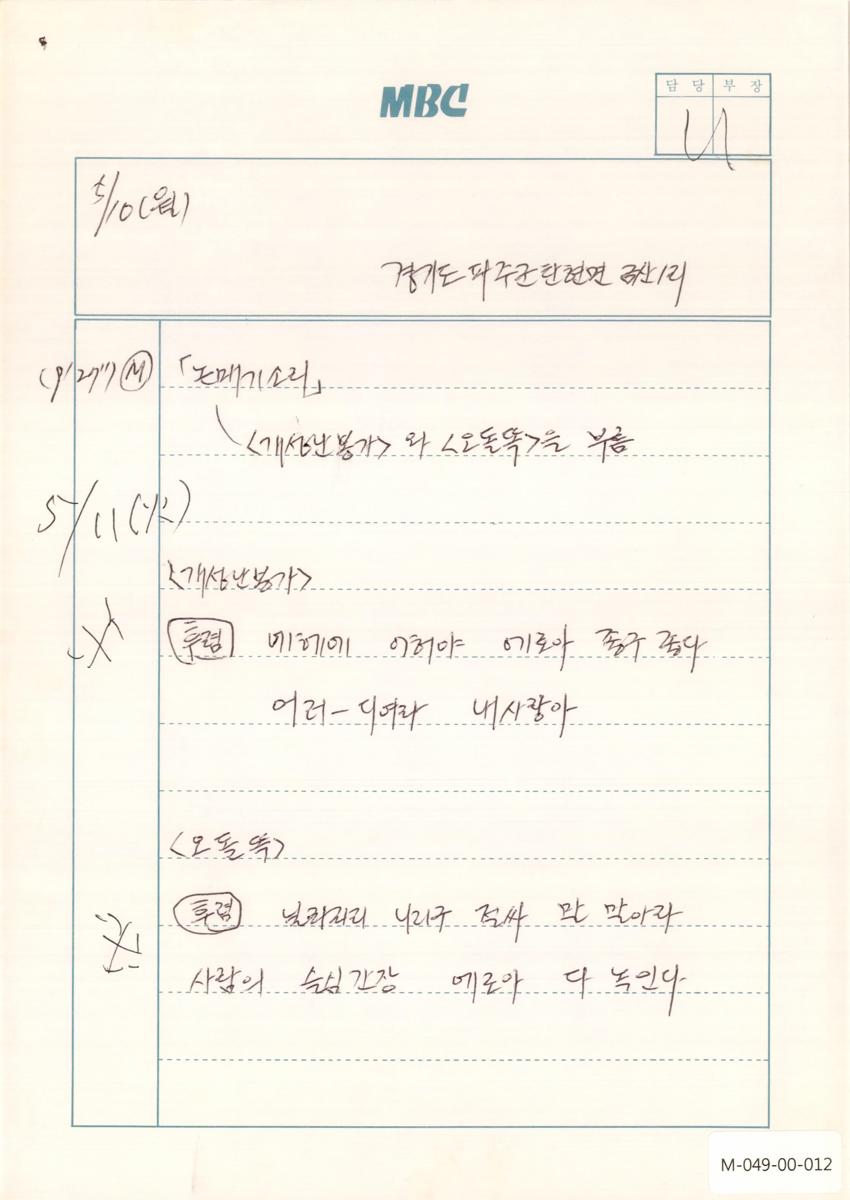 MBC
담 당 부 장
5/10(월)
경기도 파주군 탄현면 금산1리
(9'27") Ⓜ 「논매기소리」
<개성난봉가> 와 <오돌똑>을 부름
5/11(火)
<개성난봉가>
후렴 에헤에 어허야 에로아 좋구 좋다
어러—디여라 내사랑아
<오돌똑>
후렴 닐리리리 나리구 절싸 말 말아라
사람의 속심간장 에로아 다 녹인다
M-049-00-012